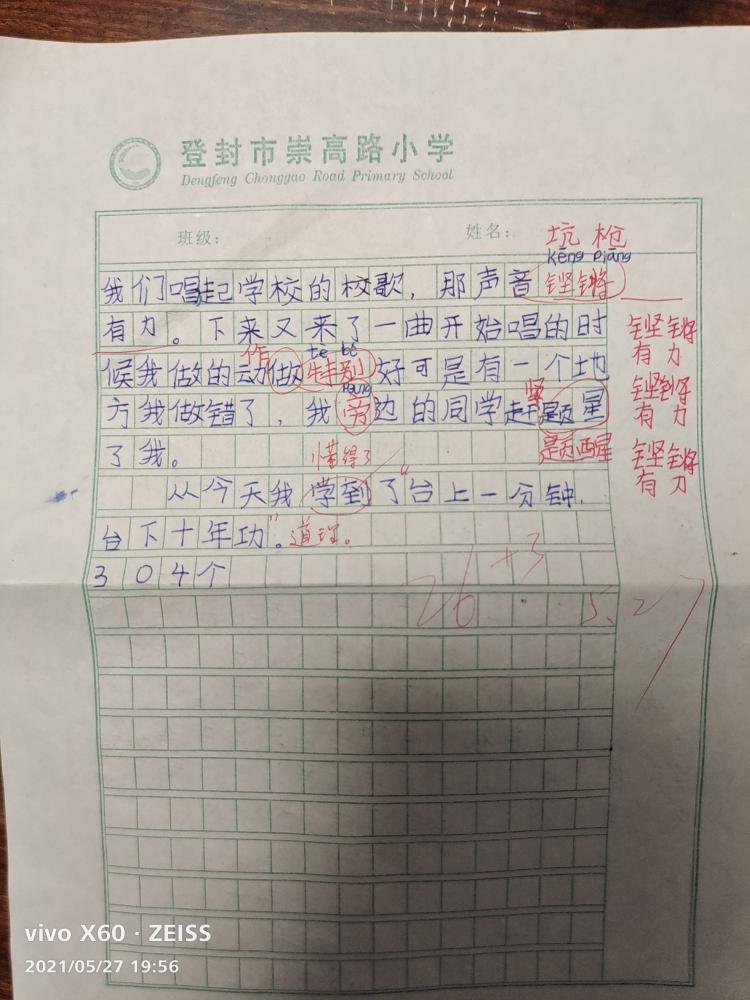 登封市崇高路小学
Dengfeng Chonggao Road Primary School
班级：
姓名：
坑 枪
kēng qiāng
我们唱起学校的校歌，那声音铿锵
有力。下来又来了一曲开始唱的时
作
tè bé
候我做的动做特别好可是有一个地
páng
方我做错了，我旁边的同学赶
题星
了我。
懂得了
从今天我学到了“台上一分钟.
台下十年功”。道理。
304个
铿锵
有力
铿锵
有力
铿锵
有力
26 +3
5.27
vivo X60 · ZEISS
2021/05/27 19:56